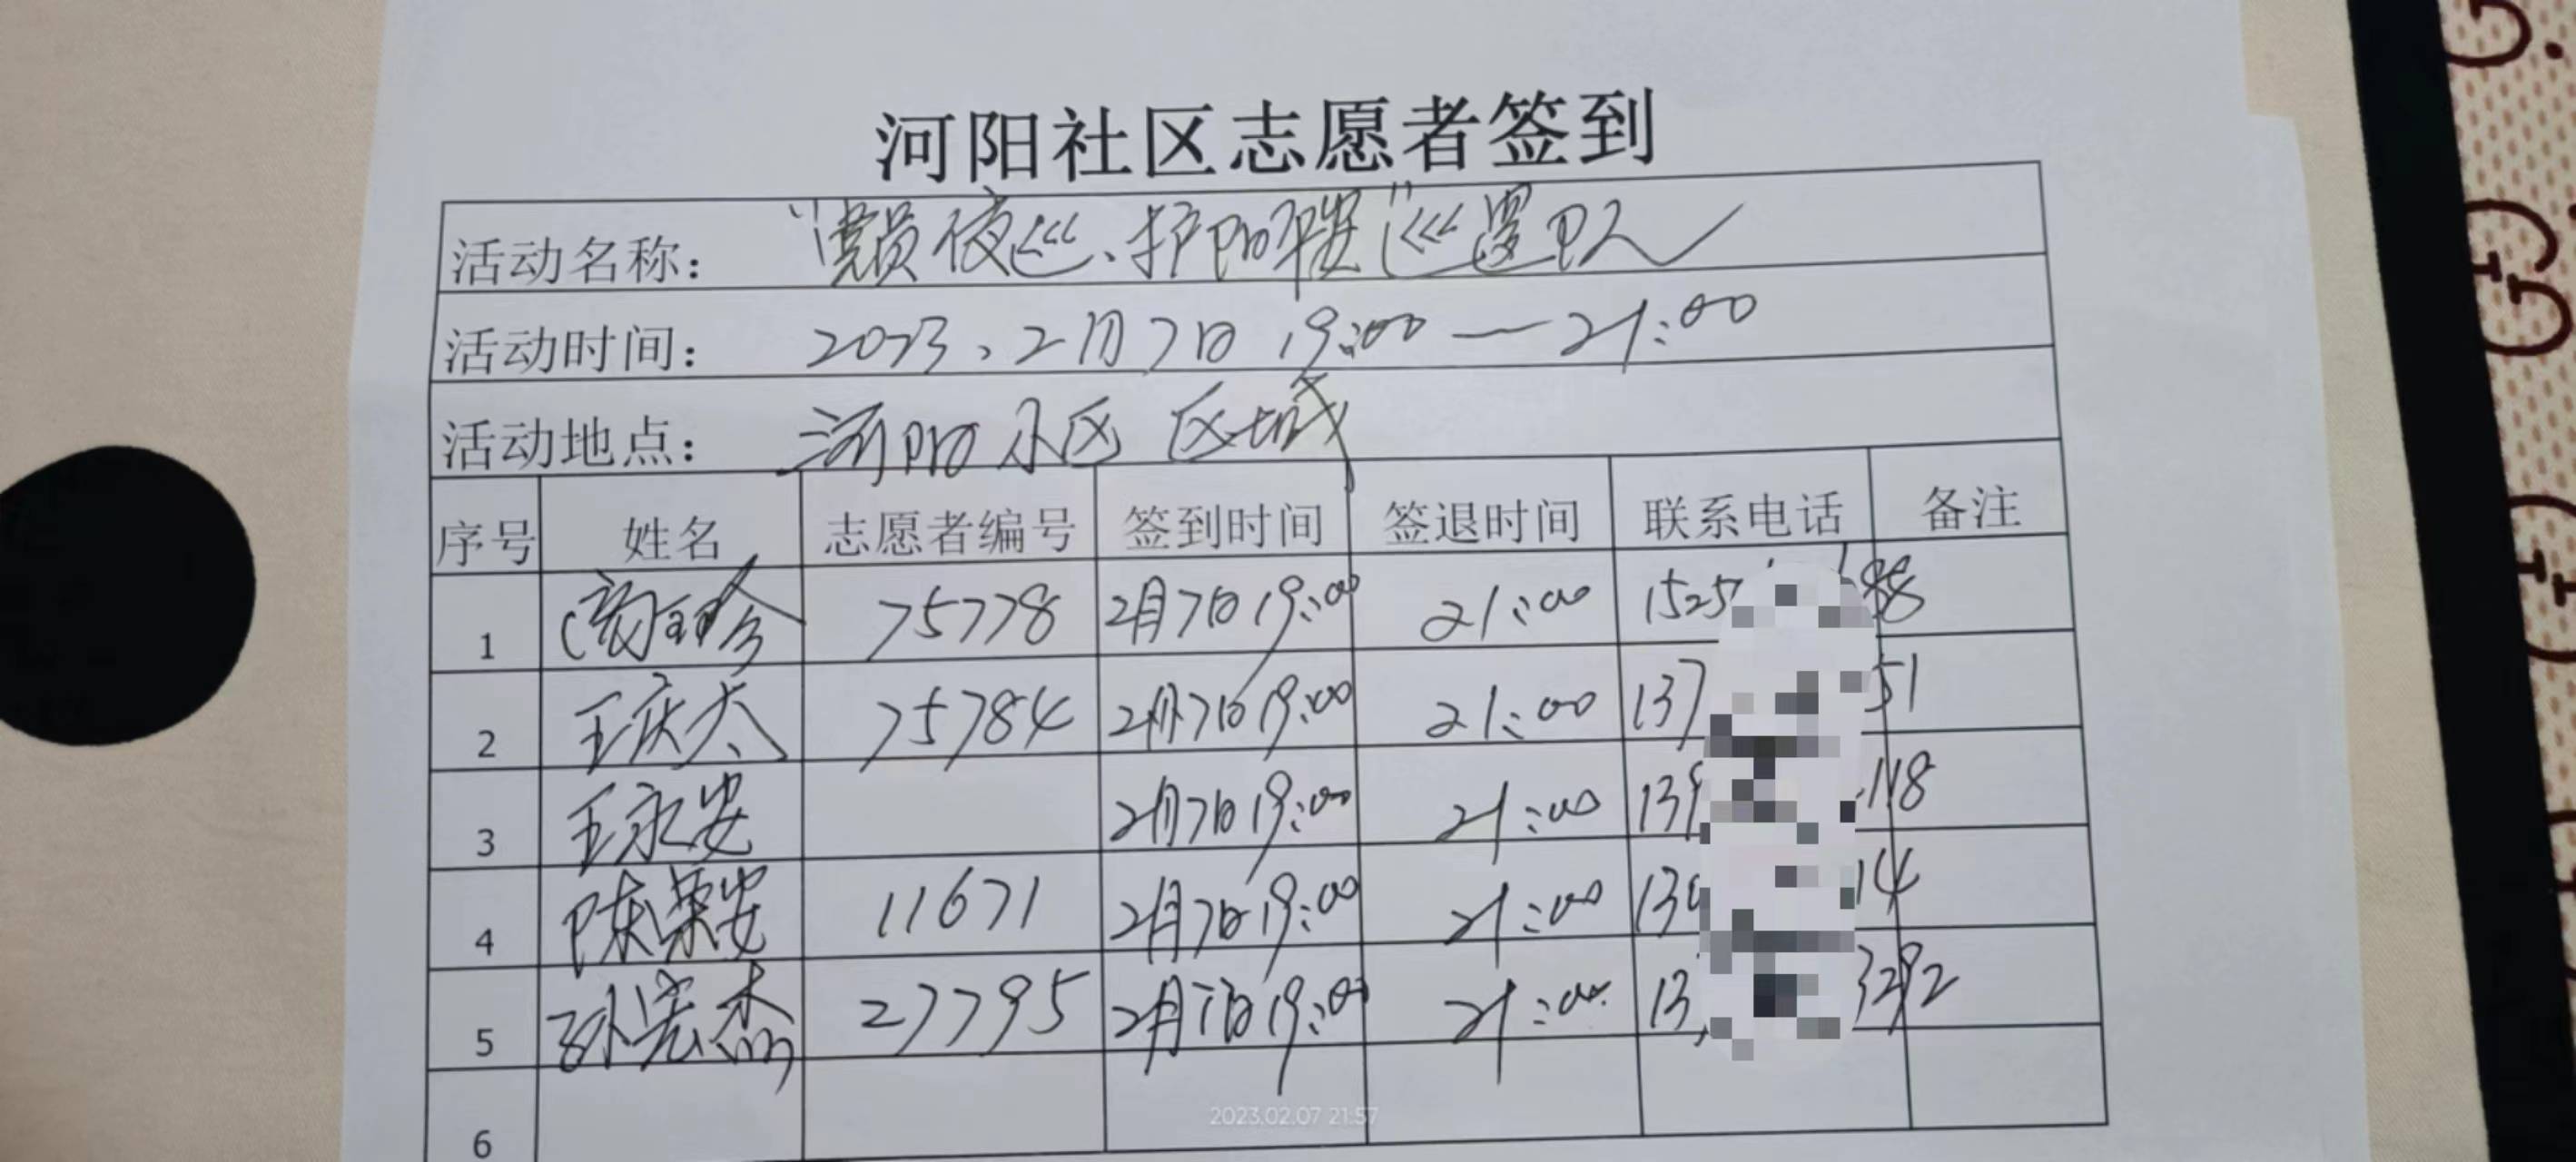 河阳社区志愿者签到
活动名称： “党员夜巡、护阳平安”巡逻队
活动时间： 2023、2月7日 19:00—21:00
活动地点： 河阳小区 区域
序号 姓名 志愿者编号 签到时间 签退时间 联系电话 备注
1 75778 2月7日19:00 21:00 1525 88
2 王庆大 75784 2月7日19:00 21:00 137 51
3 王永安 2月7日19:00 21:00 139 118
4 陈荣安 11671 2月7日19:00 21:00 139 14
5 孙宏杰 27795 2月7日19:00 21:00 13 3292
6
2023.02.07 21:57